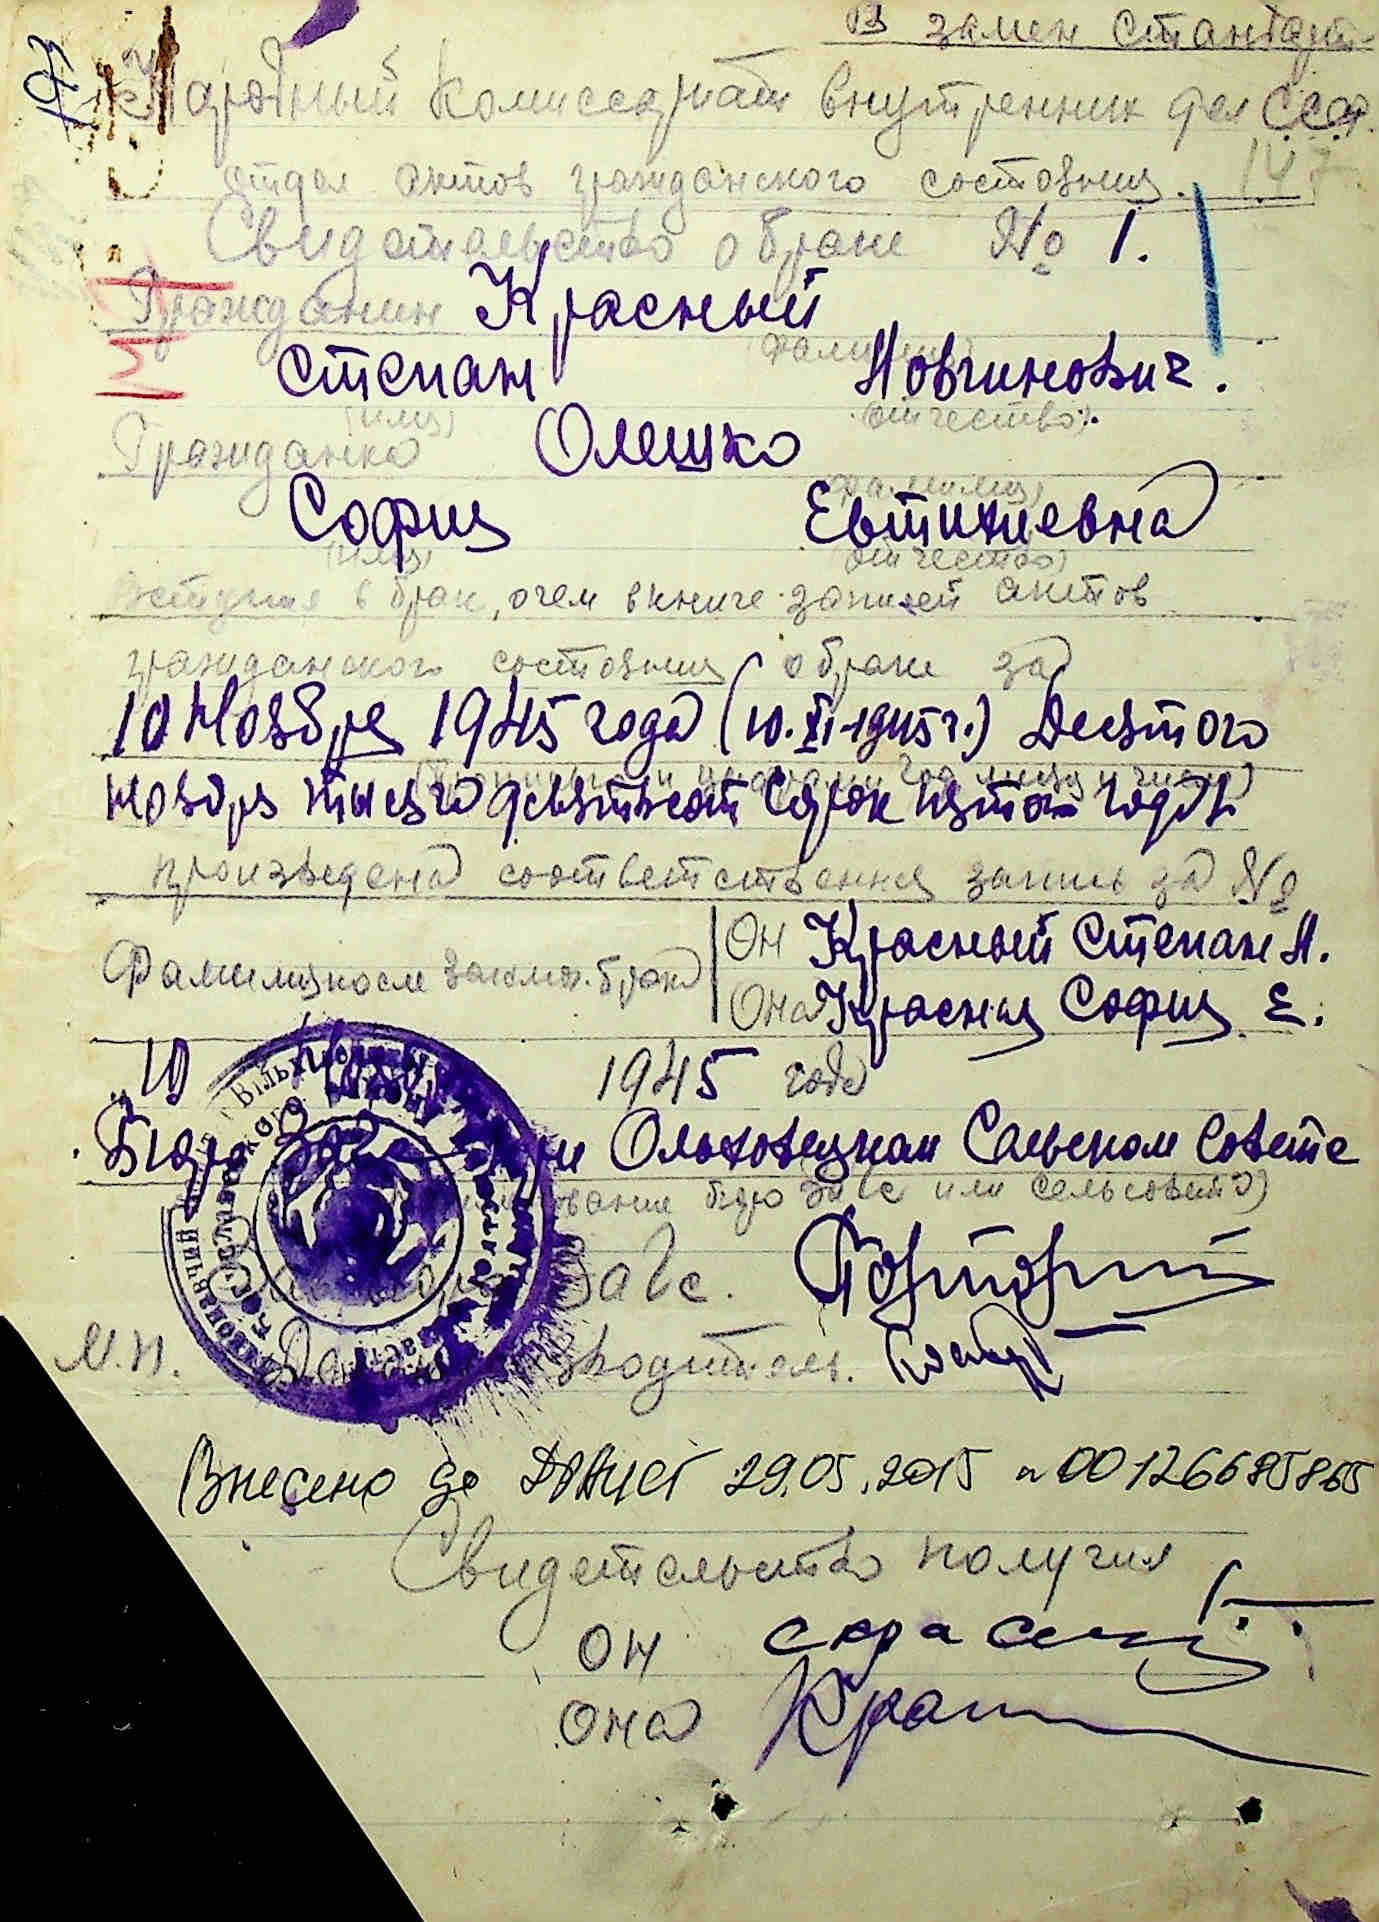 В замен стандарт
193
Народный Комиссариат внутренних дел СССР
147
отдел актов гражданского состояния.
Свидетельство о браке № 1.
Гражданин Красный
(фамилия)
Степан Логгинович.
(имя) (отчество)
Гражданка Олешко
(фамилия)
София Евтихиевна
(имя) (отчество)
вступил в брак, о чем в книге записей актов
гражданского состояния о браке за
10 Ноября 1945 года (10.XI-1945 г.) Десятого
(прописью и цифрами год, месяц и число)
Ноября тысяча девятьсот сорок пятого года
произведена соответственная запись за №
Фамилия после заключ. брака
Он Красный Степан Л.
Она Красная София Е.
"10 1945 года
Бюро Загс при Ольховецком Сельском Совете
(наименование бюро загс или сельсовета)
Загс.
М.П. Делопроизводитель.
Внесено до ДРАЦСГ 29.05.2015 № 00126685865
Свидетельство получил
он
она Крас